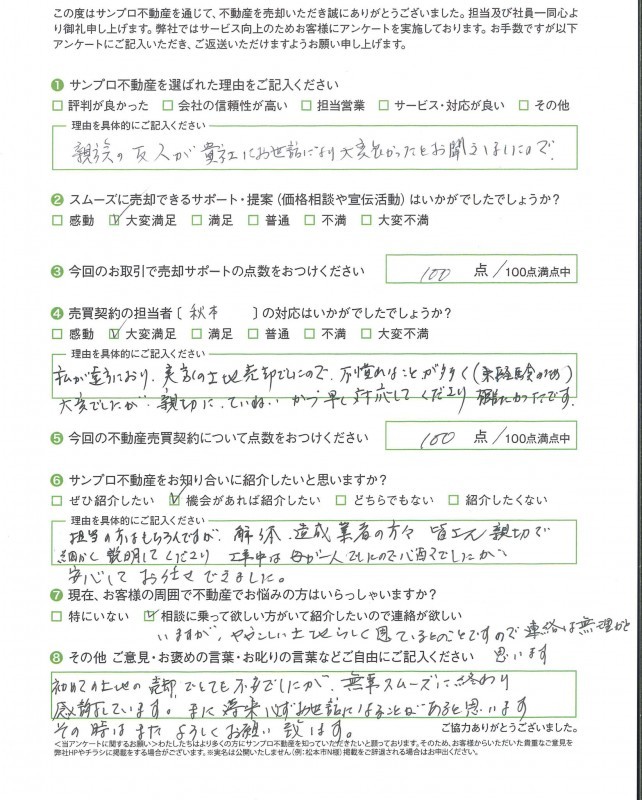 この度はサンプロ不動産を通じて、不動産を売却いただき誠にありがとうございました。担当及び社員一同心よ
り御礼申し上げます。弊社ではサービス向上のためお客様にアンケートを実施しております。お手数ですが以下
アンケートにご記入いただき、ご返送いただけますようお願い申し上げます。
❶ サンプロ不動産を選ばれた理由をご記入ください
□ 評判が良かった □ 会社の信頼性が高い □ 担当営業 □ サービス・対応が良い □ その他
理由を具体的にご記入ください
親族の友人が貴社にお世話になり大変良かったとお聞きしましたので。
❷ スムーズに売却できるサポート・提案(価格相談や宣伝活動)はいかがでしたでしょうか?
□ 感動 ☑ 大変満足 □ 満足 □ 普通 □ 不満 □ 大変不満
❸ 今回のお取引で売却サポートの点数をおつけください 100 点/100点満点中
❹ 売買契約の担当者〔 秋本 〕の対応はいかがでしたでしょうか?
□ 感動 ☑ 大変満足 □ 満足 □ 普通 □ 不満 □ 大変不満
理由を具体的にご記入ください
私が遠方におり、実家の土地売却でしたので、不慣れなことが多く(未経験のため)
大変でしたが、親切に、ていねいかつ早く対応してくださり 有難かったです。
❺ 今回の不動産売買契約について点数をおつけください 100 点/100点満点中
❻ サンプロ不動産をお知り合いに紹介したいと思いますか?
□ ぜひ紹介したい ☑ 機会があれば紹介したい □ どちらでもない □ 紹介したくない
理由を具体的にご記入ください
担当の方はもちろんですが、解体、造成業者の方々 皆さん親切で
細かく説明してくださり 工事中は母が一人でしたので心配でしたが
安心してお任せできました。
❼ 現在、お客様の周囲で不動産でお悩みの方はいらっしゃいますか?
□ 特にいない ☑ 相談に乗って欲しい方がいて紹介したいので連絡が欲しい
いますが、ややこしい土地らしく困っているとのことですので連絡は無理かと
思います
❽ その他 ご意見・お褒めの言葉・お叱りの言葉などご自由にご記入ください
初めての土地の売却でとても不安でしたが、無事スムーズに終わり
感謝しています。また将来必ずお世話になることがあると思います
その時はまた よろしくお願い致します。
ご協力ありがとうございました。
<当アンケートに関するお願い>わたしたちはより多くの方にサンプロ不動産を知っていただきたいと願っております。そのため、お客様からいただいた貴重なご意見を
弊社HPやチラシに掲載をする場合がございます。※実名は公開いたしません(例:松本市N様)掲載をご辞退される場合はお申出ください。